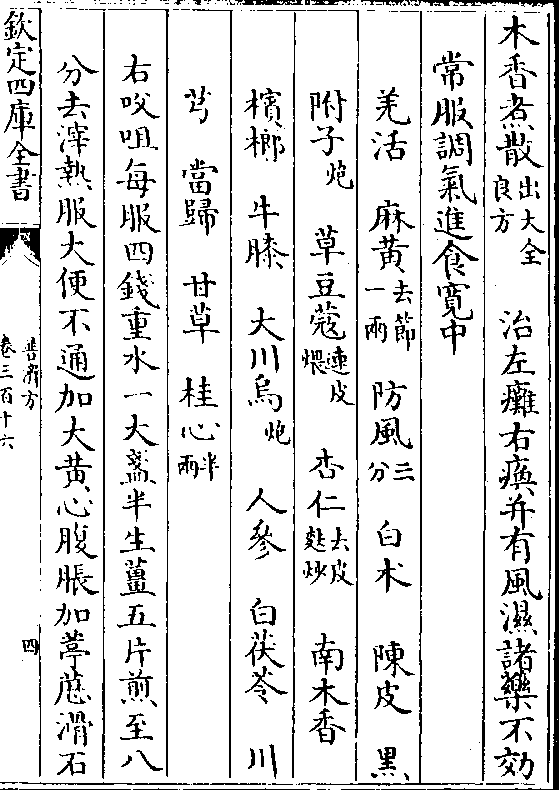 木香煮散出大全良方 治左癱右瘓并有風濕諸藥不効
常服調氣進食寛中
羌活 麻黄去節一兩 防風三分 白术 陳皮 黒
附子炮 草豆蔻連皮煨 杏仁去皮麩炒 南木香
檳榔 牛膝 大川烏炮 人參 白茯苓 川
芎 當歸 甘草 桂心半兩
右㕮咀每服四錢重水一大盞半生薑五片煎至八
分去滓熱服大便不通加大黄心腹脹加葶藶滑石
欽定四庫全書
普濟方
卷三百十六
四